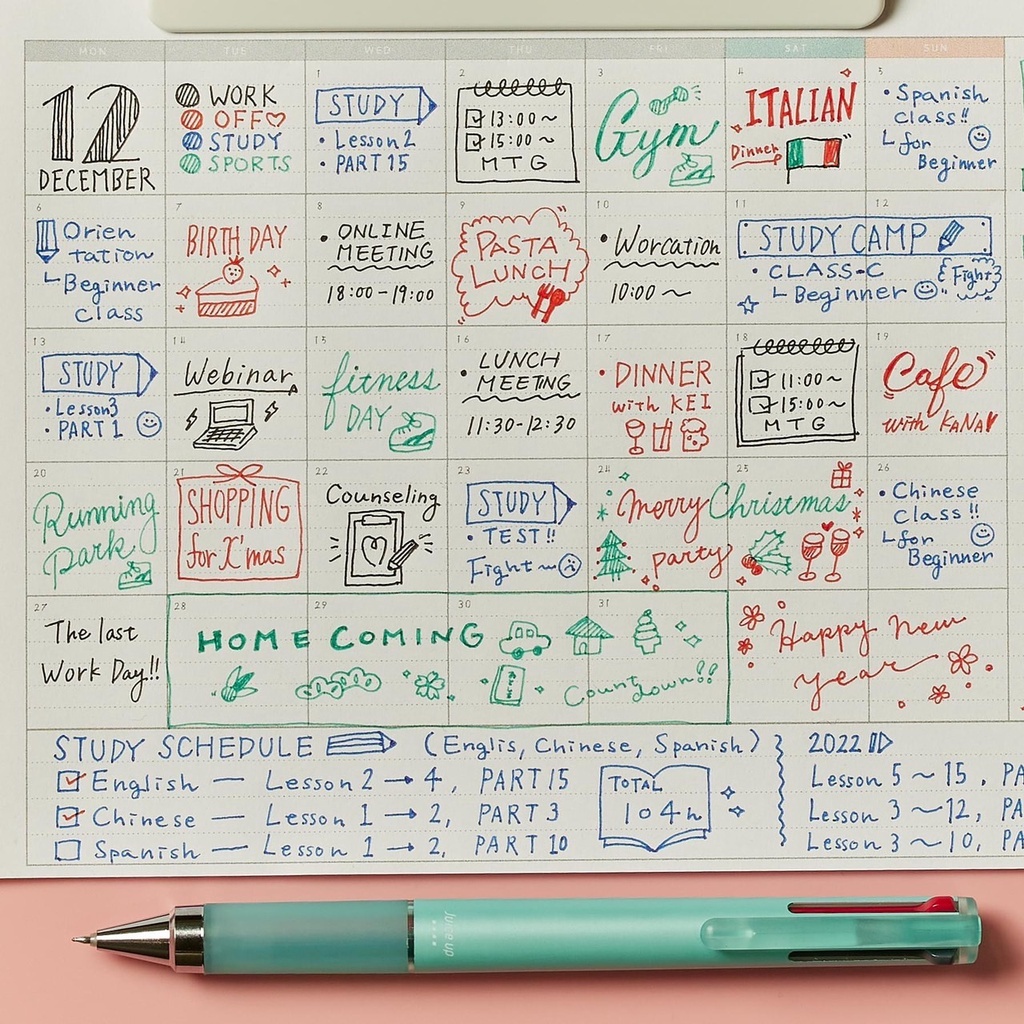 MON TUE WED THU FRI SAT SUN
12
DECEMBER
WORK
OFF♡
STUDY
SPORTS
1
STUDY
• Lesson2
• PART 15
2
13:00~
15:00~
MTG
3
Gym
4
ITALIAN
Dinner
5
• Spanish
class!!
for
Beginner
6
Orien
tation
Beginner
class
7
BIRTHDAY
8
• ONLINE
MEETING
18:00-19:00
9
PASTA
LUNCH
10
• Worcation
10:00~
11
12
STUDY CAMP
• CLASS-C
Beginner
Fight
13
STUDY
• Lesson3
• PART 1
14
Webinar
15
fitness
DAY
16
• LUNCH
MEETING
11:30-12:30
17
• DINNER
with KEI
18
11:00~
15:00~
MTG
19
Cafe
with KANA
20
Running
Park
21
SHOPPING
for X'mas
22
Counseling
23
STUDY
• TEST!!
Fight~
24
25
Merry Christmas
party
26
• Chinese
Class!!
for
Beginner
27
The last
Work Day!!
28
29
30
31
HOME COMING
Count down!!
Happy New
year
STUDY SCHEDULE (Englis, Chinese, Spanish)
English — Lesson 2 → 4, PART 15
Chinese — Lesson 1 → 2, PART 3
Spanish — Lesson 1 → 2, PART 10
TOTAL
104h
2022
Lesson 5 ~ 15. PA
Lesson 3 ~ 12, PA
Lesson 3 ~ 10, PA
Juice up